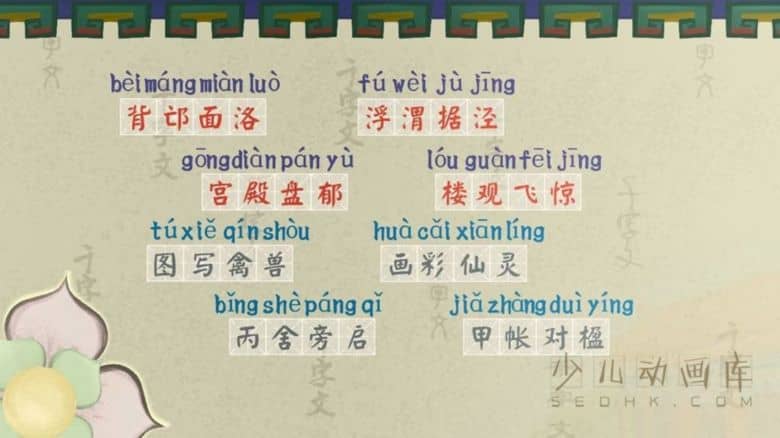 bèi máng miàn luò fú wèi jù jīng
背邙面洛 浮渭据泾
gōng diàn pán yù lóu guàn fēi jīng
宫殿盘郁 楼观飞惊
tú xiě qín shòu huà cǎi xiān líng
图写禽兽 画彩仙灵
bǐng shè páng qǐ jiǎ zhàng duì yíng
丙舍旁启 甲帐对楹
少儿动画库
SEDHK.COM